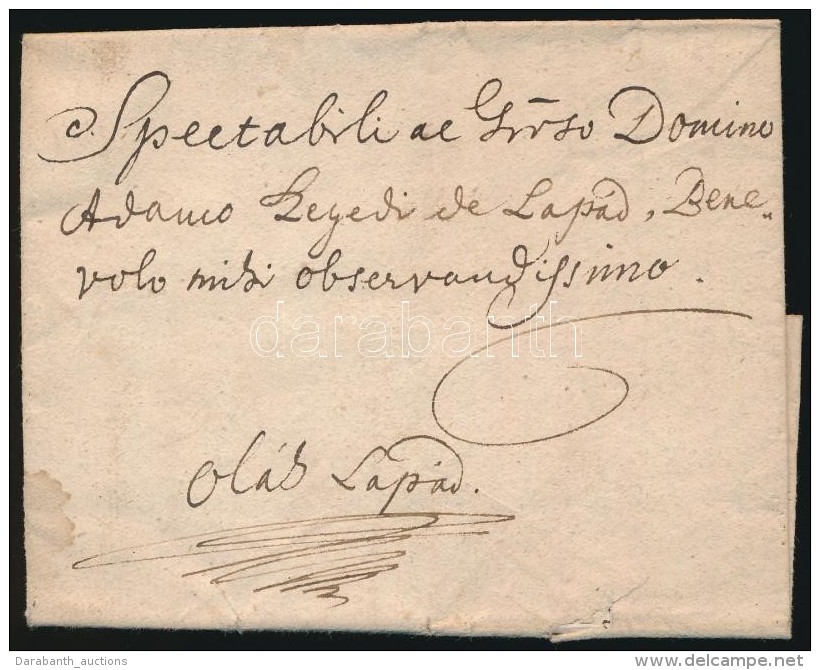 Spectabili ac Gnrso Domino
Adamo Kegedi de Lapád, Bene„
volo mihi observandissimo.
darabanth
Oláh Lapád.
Darabanth_auctions
www.delcampe.net